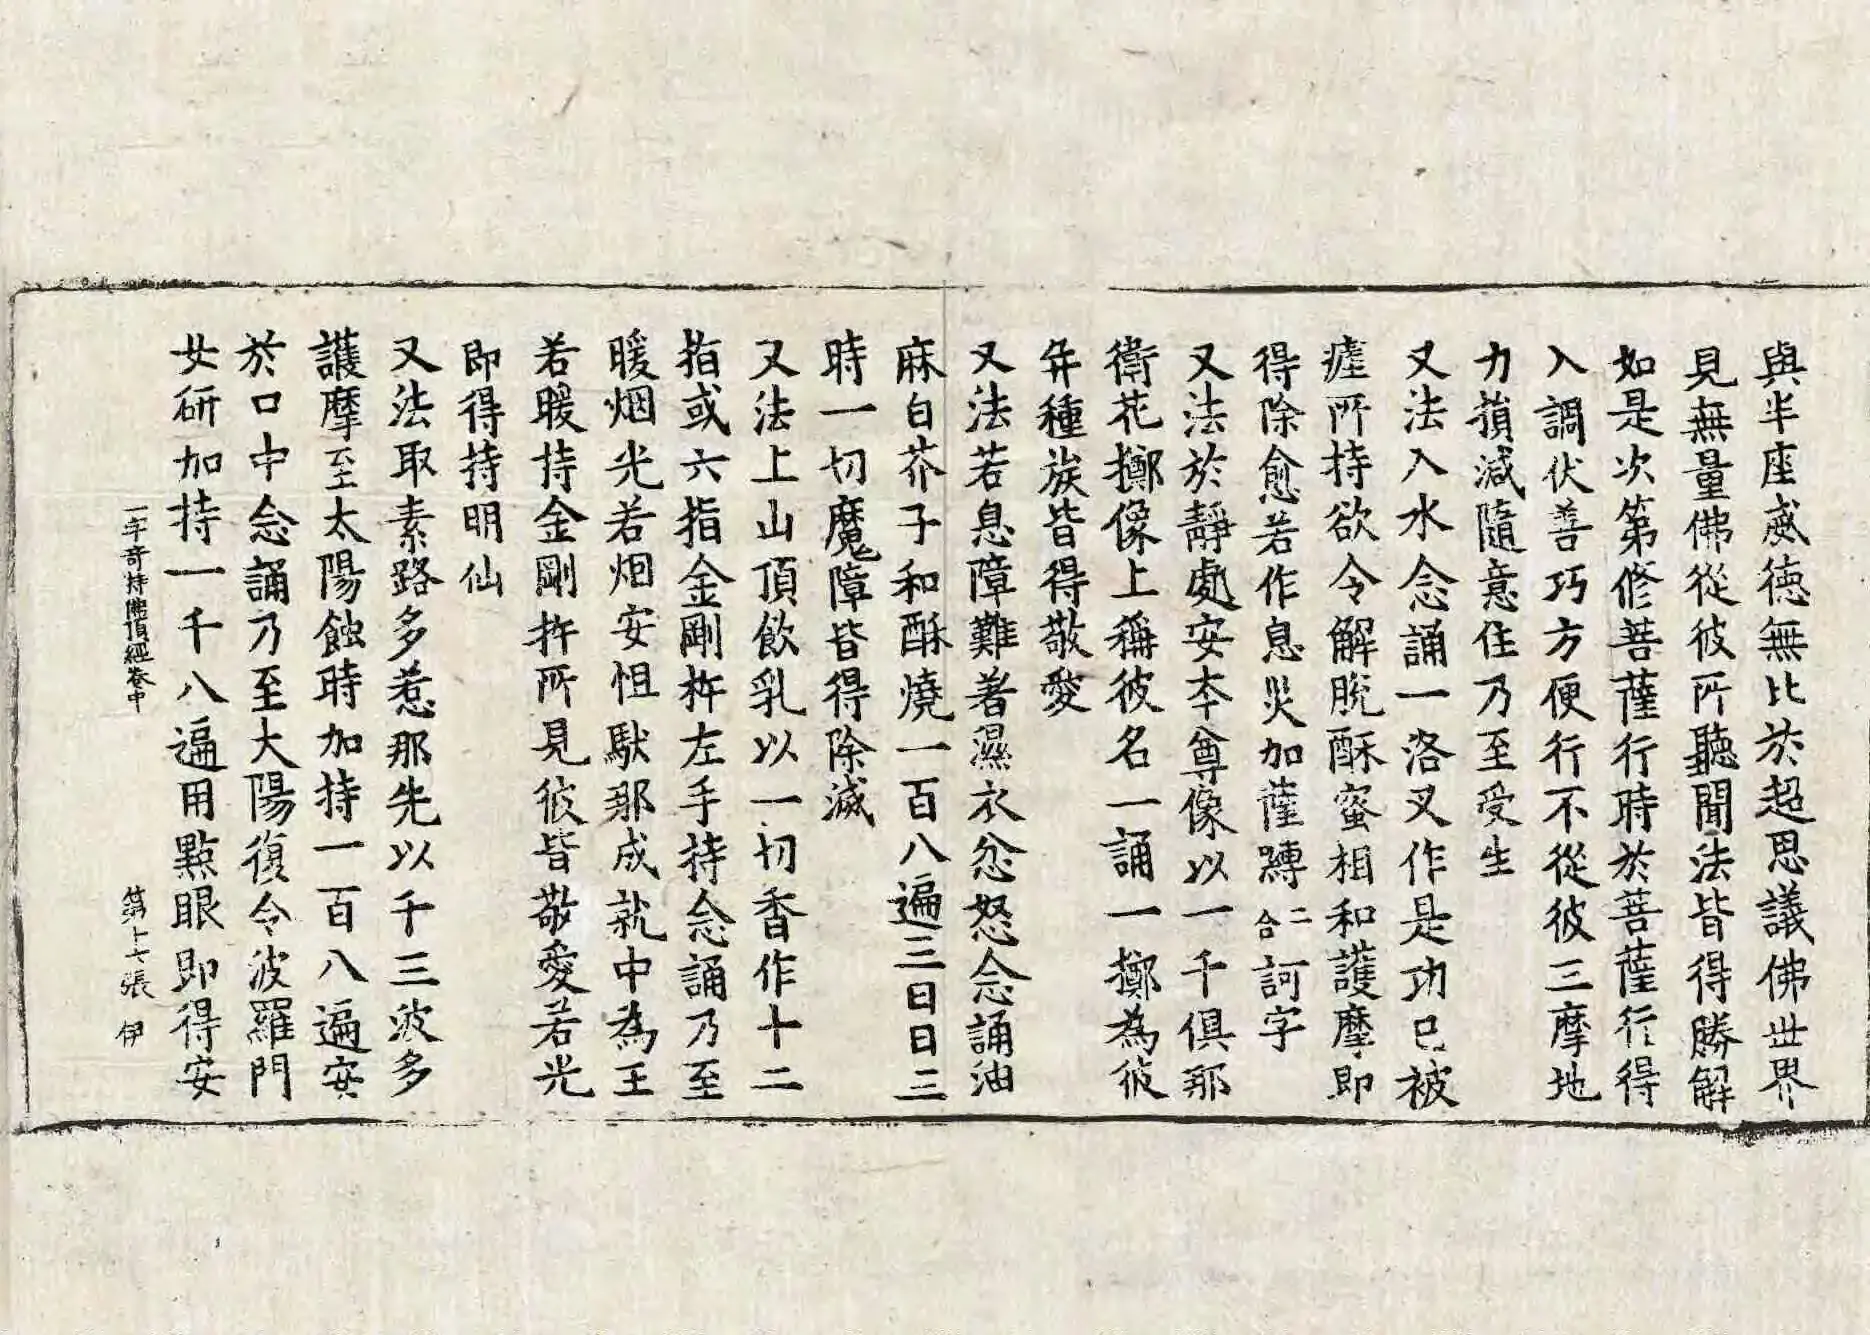 與半座威德無比於超思議佛世界
見無量佛從彼所聽聞法皆得勝解
如是次第修菩薩行時於菩薩行得
入調伏善巧方便行不從彼三摩地
力損減隨意住乃至受生
又法入水念誦一洛叉作是功已被
瘧所持欲令解脫酥蜜相和護摩即
得除愈若作息災加薩嚩二合訶字
又法於靜處安本尊像以一千俱那
衛花擲像上稱彼名一誦一擲為彼
并種族皆得敬愛
又法若息障難著濕衣忿怒念誦油
麻白芥子和酥燒一百八遍三日日三
時一切魔障皆得除滅
又法上山頂飲乳以一切香作十二
指或六指金剛杵左手持念誦乃至
暖烟光若烟安怛馱那成就中為王
若暖持金剛杵所見彼皆敬愛若光
即得持明仙
又法取素路多惹那先以千三波多
護摩至太陽蝕時加持一百八遍安
於口中念誦乃至大陽復令波羅門
女研加持一千八遍用點眼即得安
一字奇特佛頂經卷中 第十七張 伊